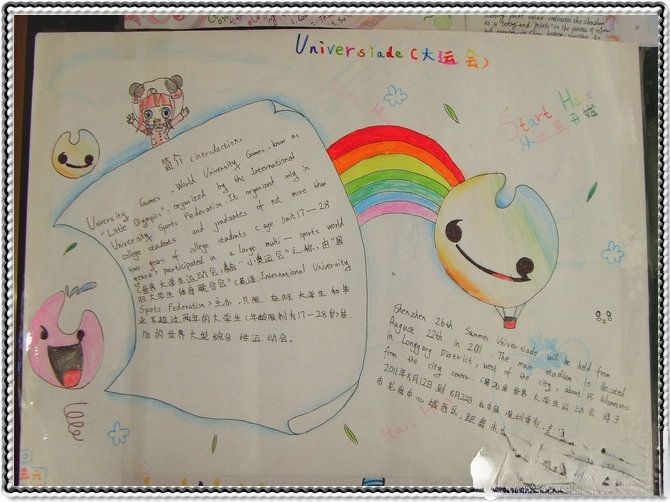 Universiade (大运会)
Start Here
从这里 开始
简介 (introduction)
University Games, World University Games, know as
"Little Olympics", organized by the International
University Sports Federation. It organized only in
college students and graduates of not more than
two years of college students (age limit 17—28
years, participated in a large multi — sports world
(世界大学生运动会, 素有"小奥运会"之称, 由"国
际大学生体育联合会" (英语: International University
Sports Federation) 主办, 只限在校大学生和毕
业不超过两年的大学生 (年龄限制为17—28岁) 参
加的世界大型综合性运动会.
Shenzhen 26th Summer Universiade will be held from
August 12th in 2011. The main stadium is located
in Longgang District, west of the city, about 15 kilometers
from the city center. 第26届世界大学生运动会将于
2011年8月12日到8月23日在中国深圳举行,
市龙岗中心城西区, 距离市
Start